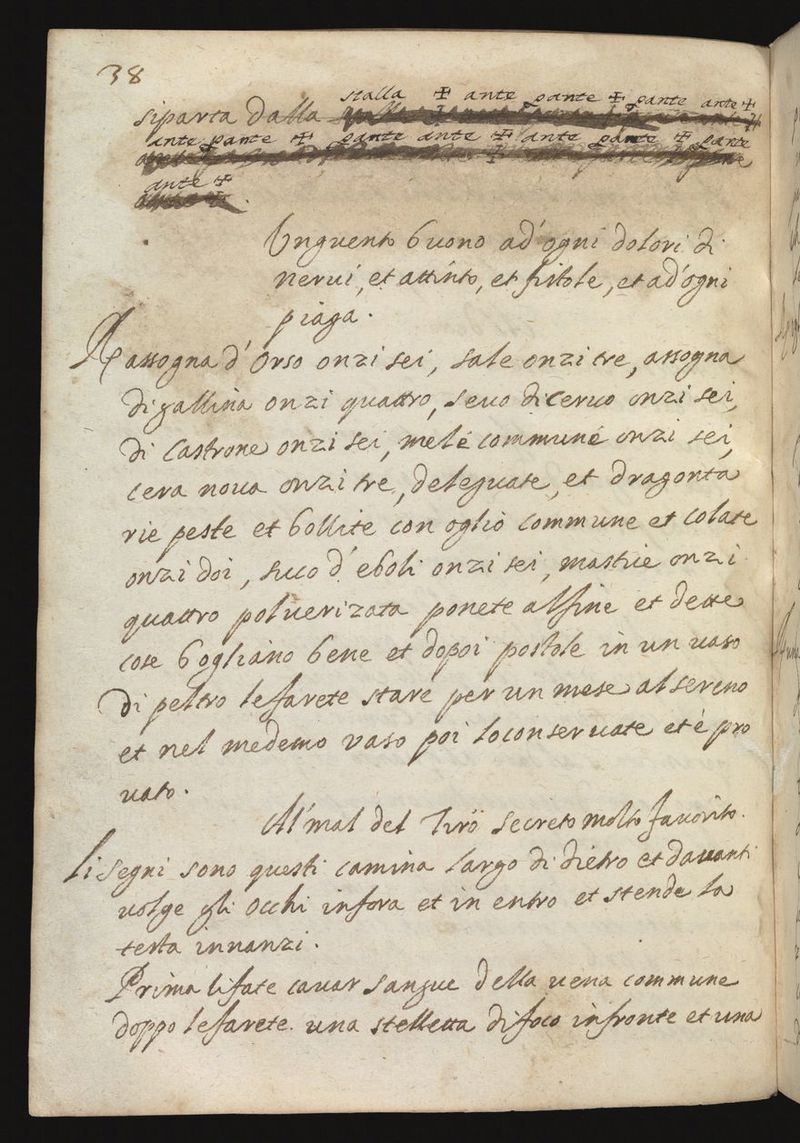 38
stalla ✠ ante pante ✠ pante ante ✠
si parta dalla
ante pante ✠ pante ante ✠ ante pante ✠ pante
ante ✠
Unguento buono ad'ogni dolori di
nerui, et attinto, et fistole, et ad'ogni
piaga.
assogna d'Orso onzi sei, sale onzi tre, assogna
di gallina onzi quattro, seuo di ceruo onzi sei,
di Castrone onzi sei, mele commune onzi sei,
cera noua onzi tre, deleguate, et dragonta
rie peste et bollite con oglio commune et colate
onzi doi, succo d'eboli onzi sei, mastice onzi
quattro poluerizata ponete alfine et dette
cose bogliano bene et dopoi postole in un uaso
di peltro le farete stare per un mese al sereno
et nel medemo vaso poi lo conseruate et è pro
uato.
Al'mal del Tirö secreto molto fauorito.
li segni sono questi camina largo di dietro et dauanti
uolge gli occhi infora et in entro et stende la
testa innanzi.
Prima li fate cauar sangue della uena commune
doppo le farete una stelletta di foco in fronte et una